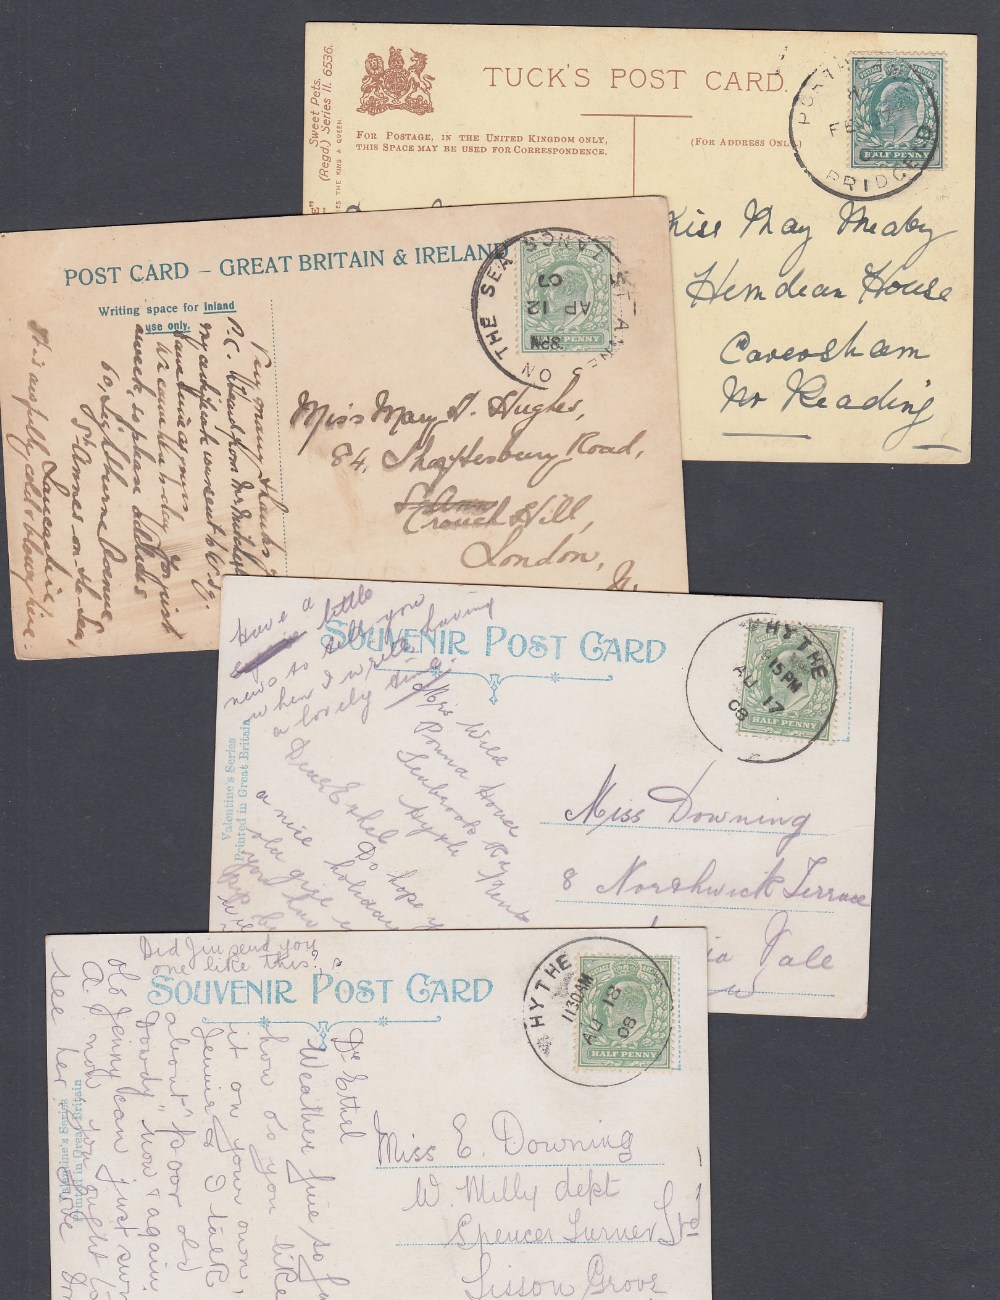 TUCK'S POST CARD.
FOR POSTAGE, IN THE UNITED KINGDOM ONLY,
THIS SPACE MAY BE USED FOR CORRESPONDENCE.
(FOR ADDRESS ONLY.)
Sweet Pets.
(Regd.) Series II. 6536.
HALF PENNY
BRIDGEND
Miss May Meaby
Hemdean House
Caversham
Nr Reading
POST CARD – GREAT BRITAIN & IRELAND
Writing space for Inland
use only.
ST ANNES ON THE SEA
AP 12
PENNY
Very many thanks
P.C.
60,
St Annes-on-the-Sea,
Lancashire.
this awfully cold & blowy here
Miss Mary H. Hughes,
84, Shaftesbury Road,
Crouch Hill,
London,
N.
SOUVENIR POST CARD
Valentine's Series
Printed in Great Britain
HYTHE
15 PM
AU 17
08
HALF PENNY
have a
little
news to tell you
when I write having
a lovely time
Mrs Wild
House
Seabrook Rd
Hythe Kent
Dear Ethel Do hope y
a nice holiday
Miss Downing
8 Northwick Terrace
Vale
W
Did Jin send you
one like this?
SOUVENIR POST CARD
Valentine's Series
Printed in Great Britain
HYTHE
11 30 AM
AU 18
08
HALF PENNY
Dr Ethel
Weather fine so fa
how do you like
it on your own,
Jennie & I talk
about "poor old
Dowdy" now & again.
old Jenny can just swi
A. now you ought to
see her dive
Miss E. Downing
W. Milly dept
Spencer Turner Ltd
Lisson Grove